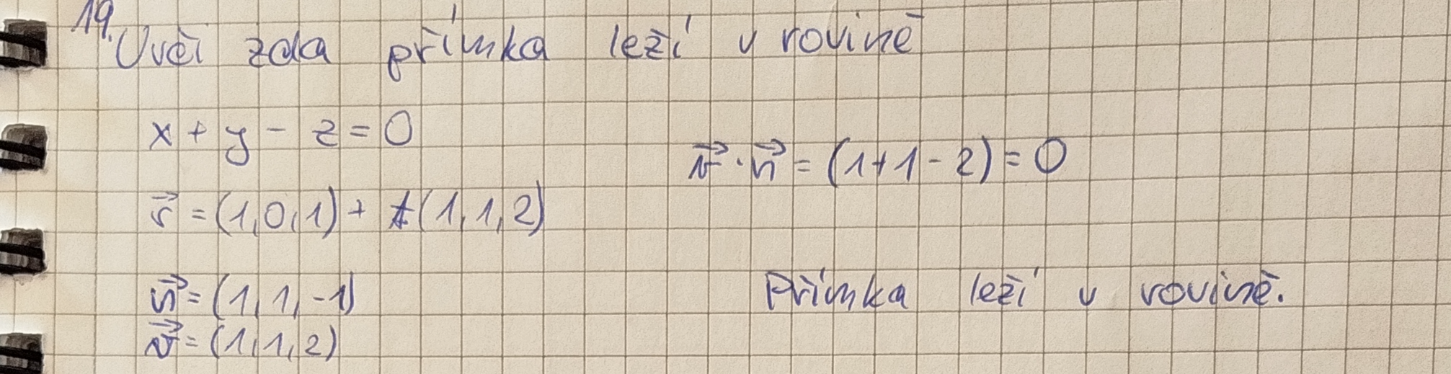 19. Uvěi zda přímka leží v rovině
x + y - z = 0
r⃗ = (1,0,1) + t(1,1,2)
n⃗ = (1,1,-1)
v⃗ = (1,1,2)
v⃗ · n⃗ = (1+1-2) = 0
Přímka leží v rovině.